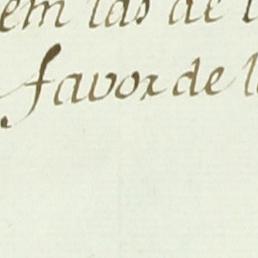 em las de
favor de l